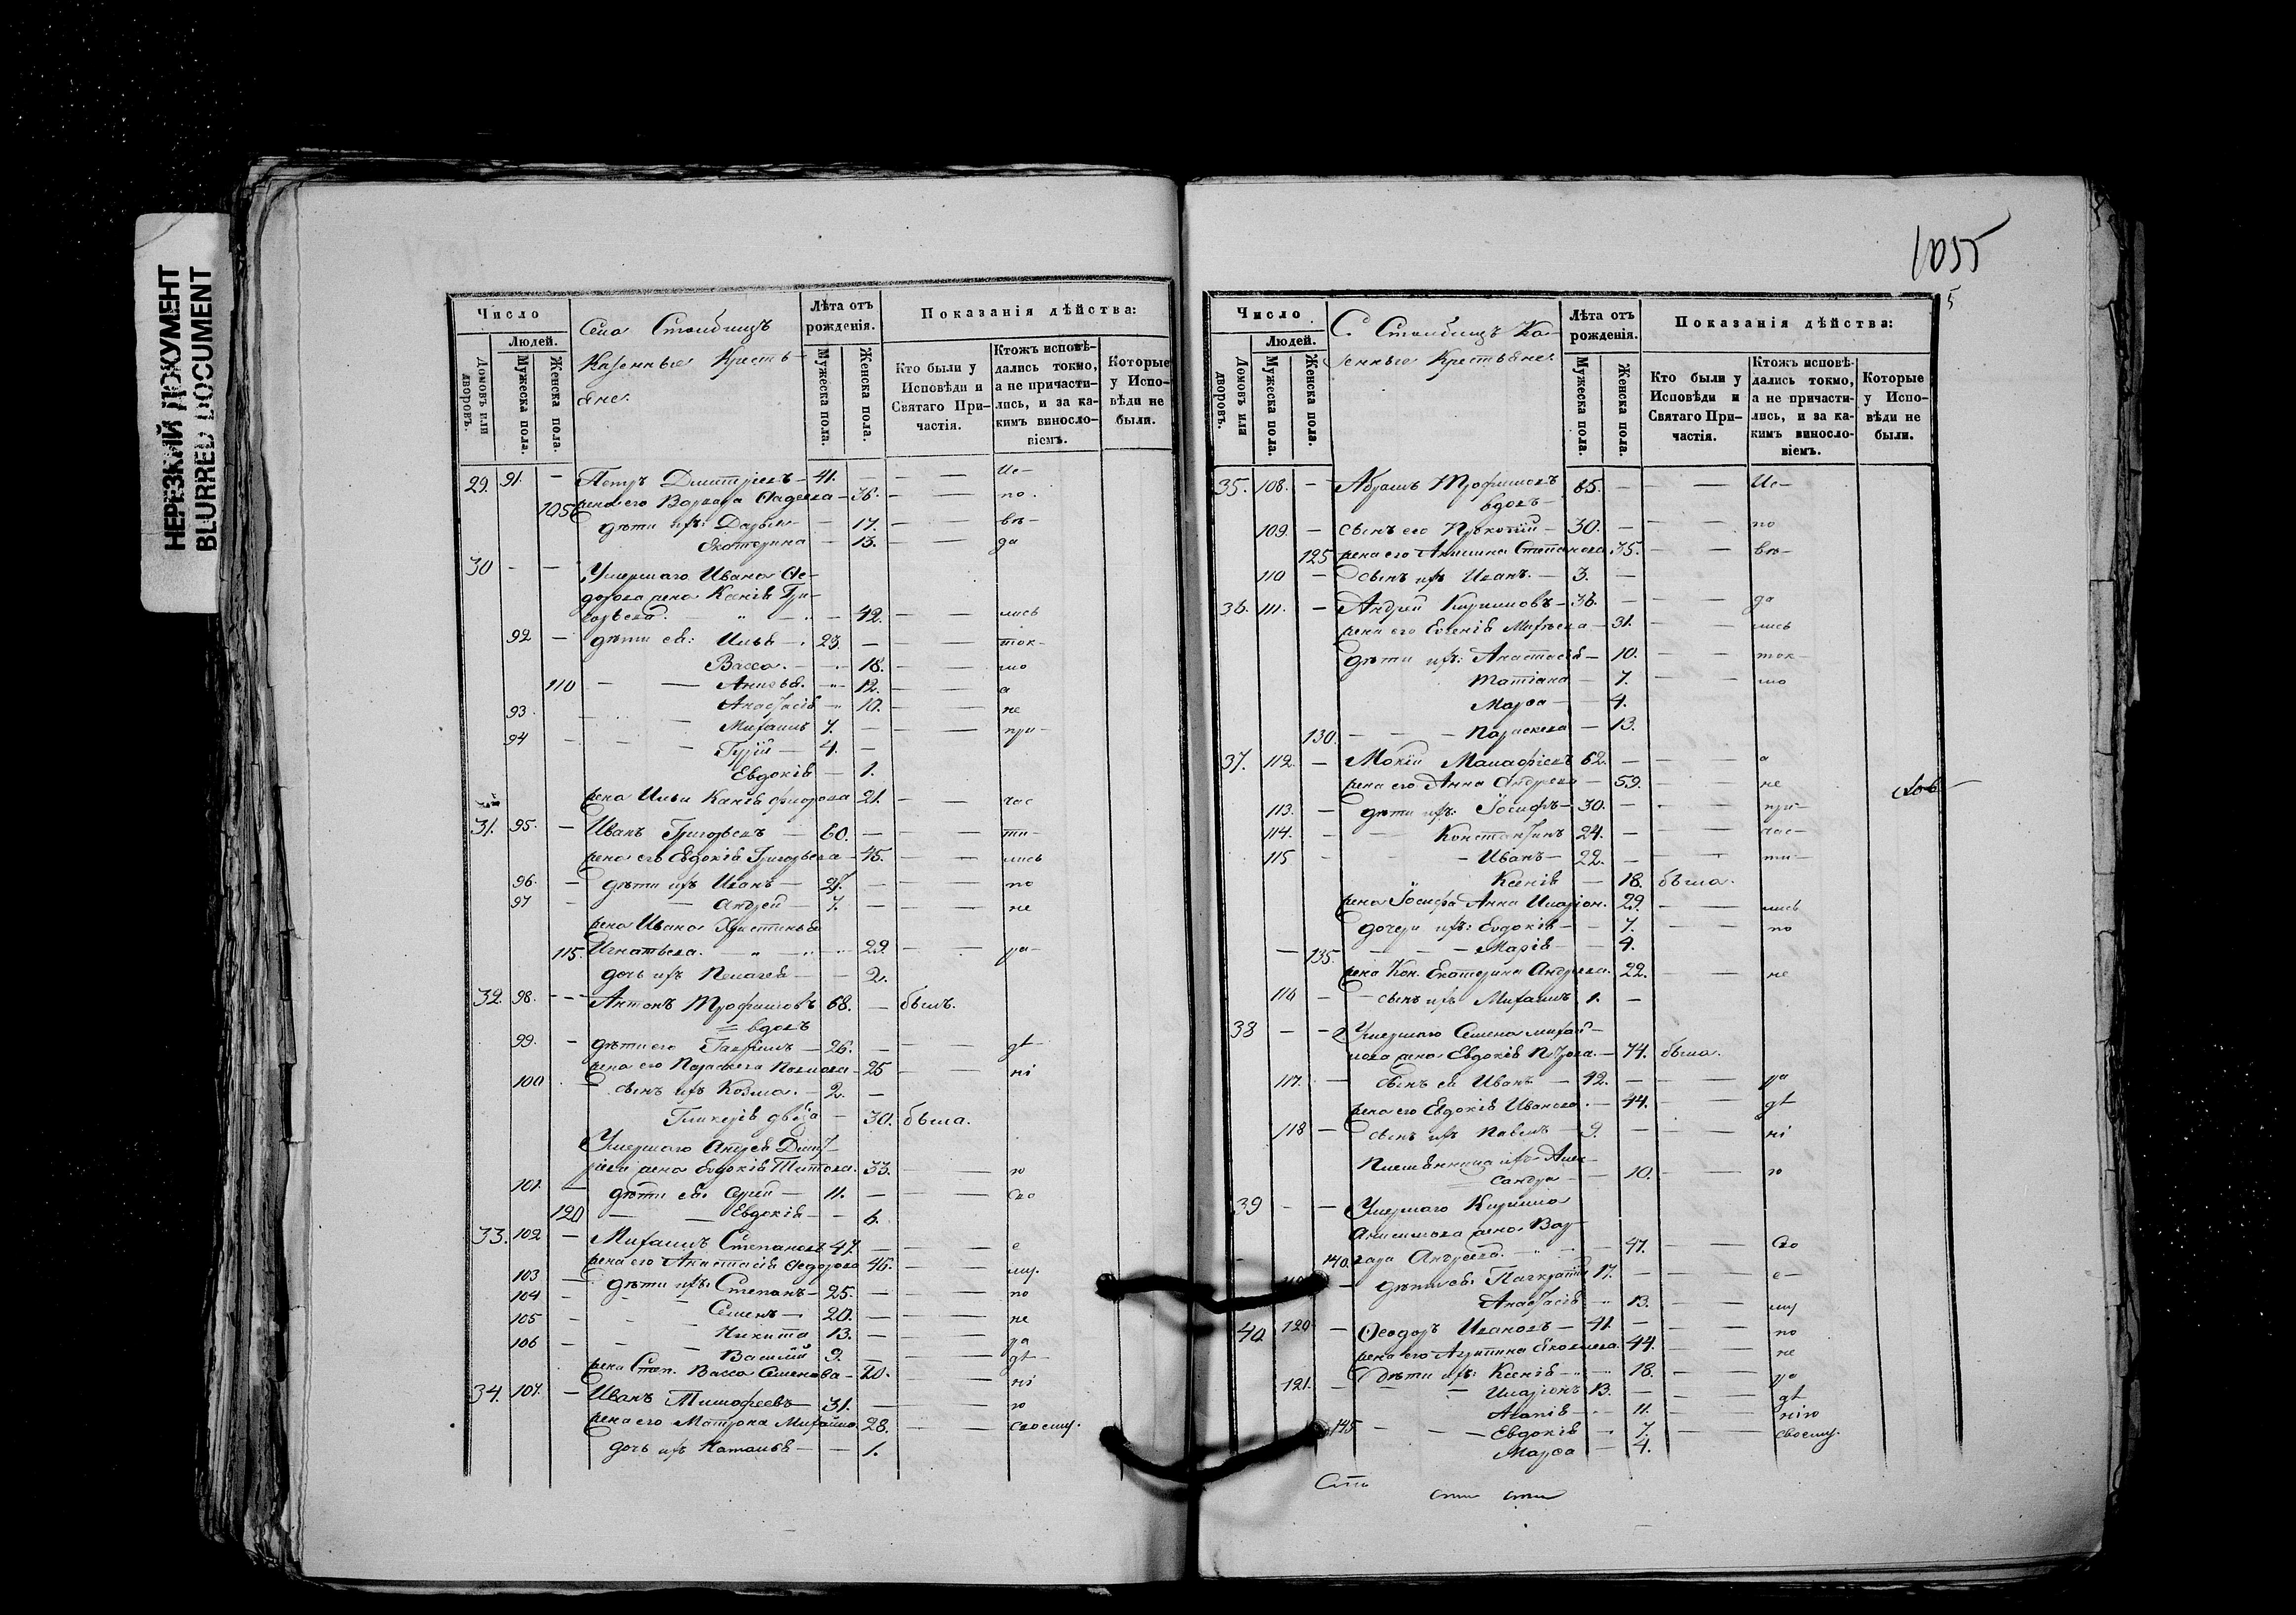 НЕРЕЗКИЙ ДОКУМЕНТ
BLURRED DOCUMENT
Число
Людей.
Домовъ или дворовъ.
Мужеска пола.
Женска пола.
Села Столбищъ
Казенные Кресть-
яне.
Лѣта отъ рожденія.
Мужеска пола.
Женска пола.
Показанія дѣйства:
Кто были у Исповѣди и Святаго При-частія.
Ктожъ исповѣ-дались токмо, а не причасти-лись, и за ка-кимъ винносло-віемъ.
Которые у Испо-вѣди не были.
29. 91. — Петръ Димитріевъ — 41. — Ис-
жена его Варвара — 36. — по-
дѣти ихъ: Дарья — 17. — вѣ-
Екатерина — 13. — да
30 — — Умершаго Ивана Ѳе-
дорова жена Ксенія Гри-
горьева — 42. — лись
92 — дѣти ея: Илья — 23. — ток-
Васса — 18. — мо
110 — 12. — а
Анастасія — 10. — не
93 Михаилъ 7. — при-
94 Гурій — 4. —
Евдокія — 1.
жена Ильи 21. — час
31. 95. — Иванъ Григорьевъ — 60. — ти-
жена его Евдокія Григорьева — 45. — лись
96. — дѣти ихъ Иванъ — по
97 — Андрей — 7. — не
жена Ивана Христинья
115. Игнатьева — 29 — ра-
дочь ихъ Пелагея — 2.
32. 98. — Антонъ Трофимовъ 68. — былъ.
вдовъ
99. — дѣти его Гавріилъ — 26. — дѣ
жена его Параскева — 25 — ні
100 — сынъ ихъ Козма — 2. —
Гликерія дѣвка — 30. была.
Умершаго Андрея Димит-
ріева жена Евдокія Титова. 33. — ю
101. — дѣти ея: Сергій — 11. — сво
120 — Евдокія — 6.
33. 102 — Михаилъ Степановъ 47. — е
жена его Анастасія Ѳедорова 46. — му.
103 — дѣти ихъ: Степанъ — 25. — по
104 — Семенъ — 20. — не
105 — Никита 13. — ра
106 — Василій 9. — дѣ
жена Степ. Васса Семенова — 20. — ні
34. 107. — Иванъ Тимофеевъ — 31. — ю
жена его Матрона Михайло. 28. — своему.
дочь ихъ Наталья — 1.
1055
5
Число
Людей.
Домовъ или дворовъ.
Мужеска пола.
Женска пола.
С. Столбищъ Ка-
зенные Крестьяне.
Лѣта отъ рожденія.
Мужеска пола.
Женска пола.
Показанія дѣйства:
Кто были у Исповѣди и Святаго При-частія.
Ктожъ исповѣ-дались токмо, а не причасти-лись, и за ка-кимъ винносло-віемъ.
Которые у Испо-вѣди не были.
35. 108. — Абрамъ Трофимовъ 65. — Ис-
вдовъ
109. — сынъ его Прокопій — 30. — по
125 жена его Акилина Степанова 35. — вѣ-
110 — сынъ ихъ Иванъ — 3. —
36. 111. — Андрей Кириловъ — 36. — да
жена его Евгенія — 31. — лись
дѣти ихъ: Анастасія — 10. — ток-
Татіана — 7. — мо
Марѳа — 4.
130. Параскева — 13.
37. 112. — Мокій 62. — а
жена его Анна Андреева — 59. — не
113. — дѣти ихъ: Іосифъ — 30. — при-
114. — Константинъ 24. — час-
115 — Иванъ — 22. — ти-
Ксенія — 18. была.
жена Іосифа Анна Иларіон. 29. — лись
дочери ихъ: Евдокія — 7. — по
135. — Марія — 4.
жена Кон. Екатерина Андреева. 22. — не
116 — сынъ ихъ Михаилъ 1. —
38 — Умершаго Семена Михай-
лова жена Евдокія Петрова. — 74. была.
117. — сынъ ея Иванъ — 42. — ра
жена его Евдокія Иванова. — 44. — дѣ
118 — сынъ ихъ Павелъ — 9. — ні
Племянница ихъ Алек-
сандра — 10. — ю
39 — Умершаго Кирилла
Анисимова жена Вар-
140. вара Андреева — 47. — сво
дѣти ея: Панкратій 17. — е-
Анастасія — 13. — му
40. 120 — Ѳеодоръ Ивановъ — 41. — по
жена его Агрипина Яковлева 44. — не
Дѣти ихъ: Ксенія — 18. — ра
121. — Иларіонъ 13. — дѣ
Агапія — 11. — нію
145 — Евдокія — 7. — своему.
Марѳа — 4.